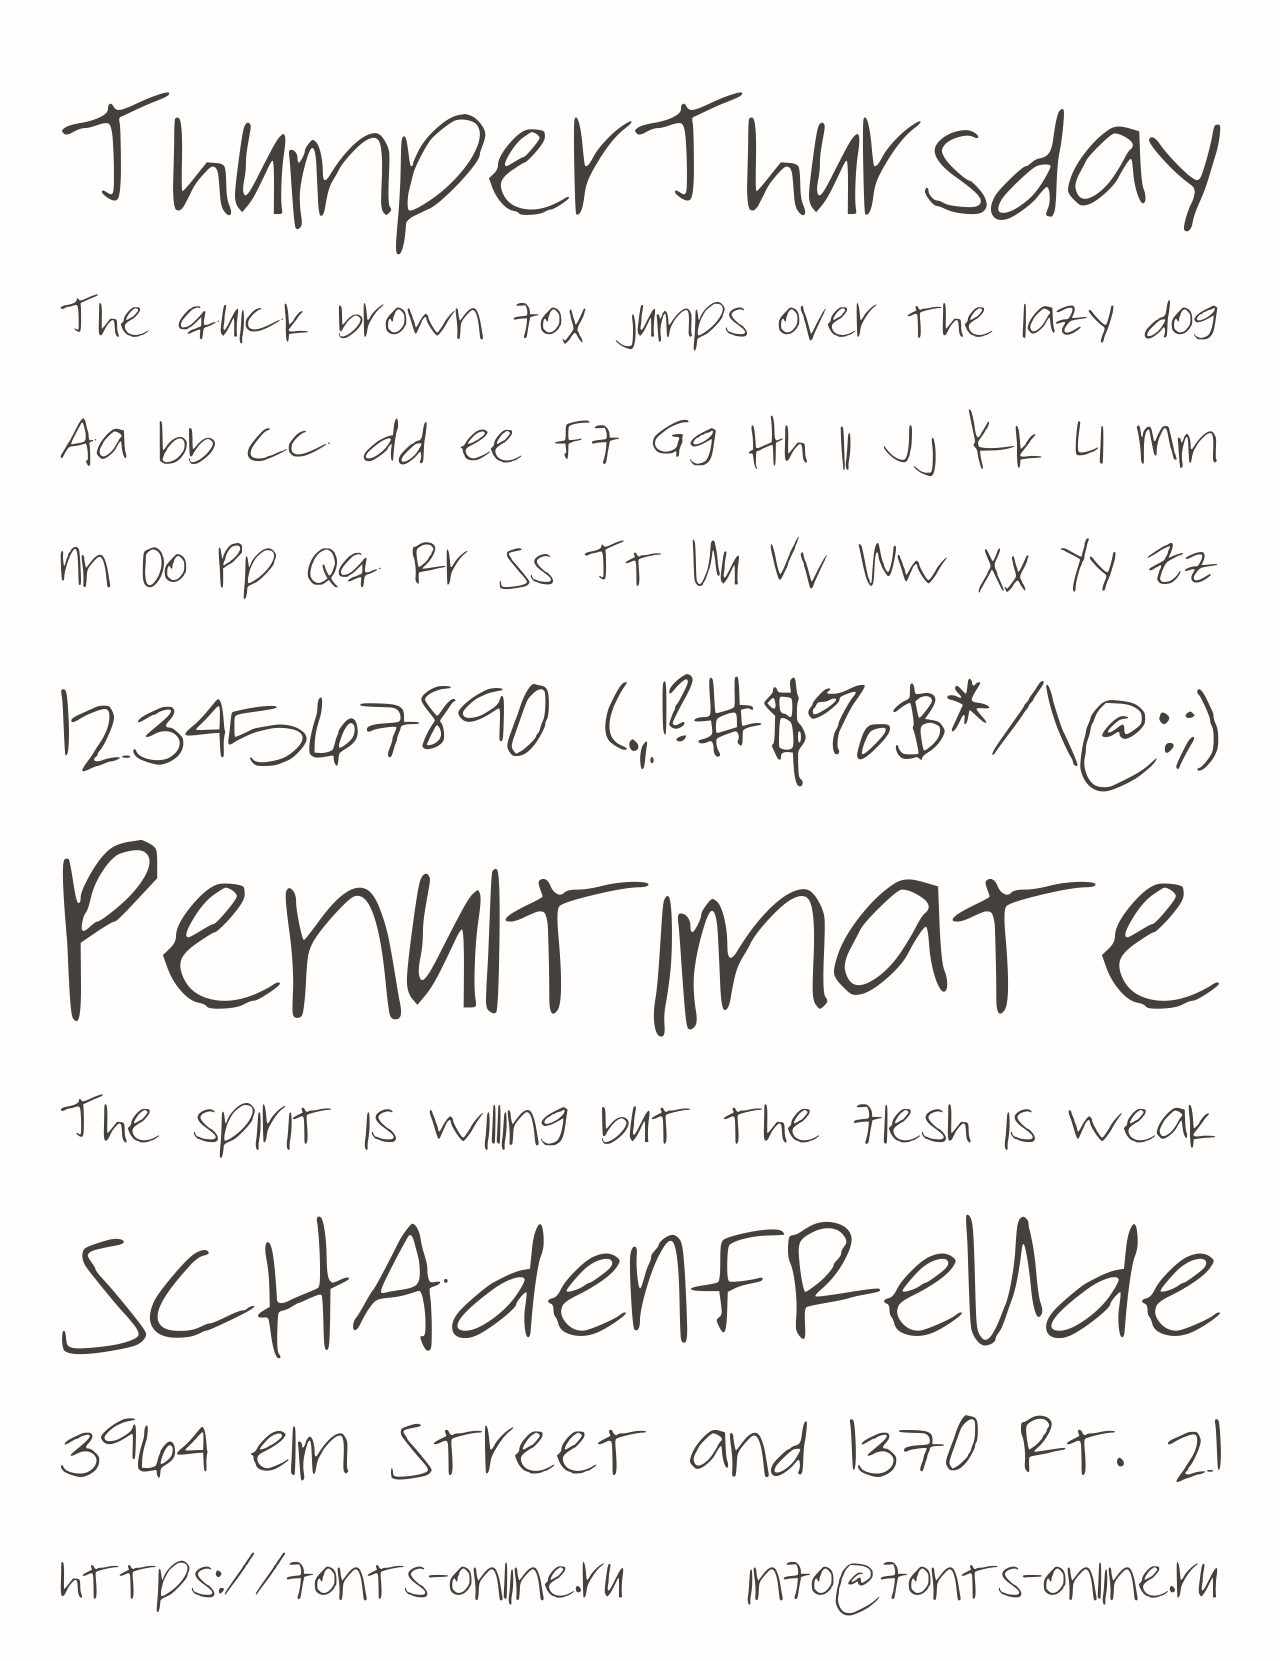 ThumperThursday
The quick brown fox jumps over the lazy dog
Aa bb Cc dd ee Ff Gg Hh Ii Jj Kk Ll Mm
Nn Oo Pp Qq Rr Ss Tt Uu Vv Ww Xx Yy Zz
1234567890 (.,!?#$%&*/\@:;)
Penultimate
The spirit is willing but the flesh is weak
SCHAdeNFReUde
3964 elm Street and 1370 Rt. 21
https://fonts-online.ru info@fonts-online.ru